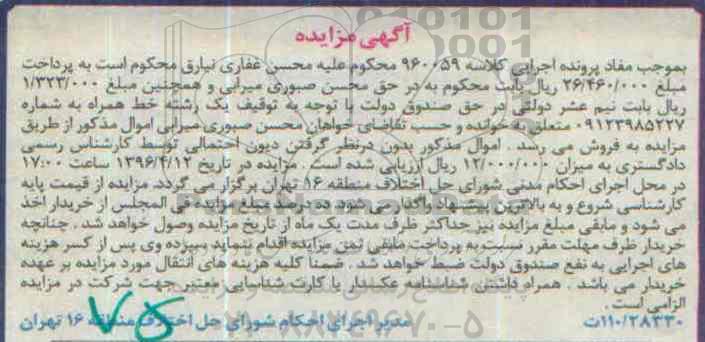 آگهی مزایده
بموجب مفاد پرونده اجرایی کلاسه ۹۶۰۰۵۹ محکوم علیه محسن غفاری نیارق محکوم است به پرداخت
مبلغ ۲۶/۴۶۰/۰۰۰ ریال بابت محکوم به در حق محسن صبوری میرابی و همچنین مبلغ ۱/۳۲۳/۰۰۰
ریال بابت نیم عشر دولتی در حق صندوق دولت با توجه به توقیف یک رشته خط همراه به شماره
۰۹۱۲۳۹۸۵۲۲۷ متعلق به خوانده و حسب تقاضای خواهان محسن صبوری میرابی اموال مذکور از طریق
مزایده به فروش می رسد . اموال مذکور بدون درنظر گرفتن دیون احتمالی توسط کارشناس رسمی
دادگستری به میزان ۱۲/۰۰۰/۰۰۰ ریال ارزیابی شده است . مزایده در تاریخ ۱۳۹۶/۴/۱۲ ساعت ۱۷:۰۰
در محل اجرای احکام مدنی شورای حل اختلاف منطقه ۱۶ تهران برگزار می گردد. مزایده از قیمت پایه
کارشناسی شروع و به بالاترین پیشنهاد واگذار می شود ده درصد مبلغ مزایده فی المجلس از خریدار اخذ
می شود و مابقی مبلغ مزایده نیز حداکثر ظرف مدت یک ماه از تاریخ مزایده وصول خواهد شد . چنانچه
خریدار ظرف مهلت مقرر نسبت به پرداخت مابقی ثمن مزایده اقدام ننماید سپرده وی پس از کسر هزینه
های اجرایی به نفع صندوق دولت ضبط خواهد شد . ضمنا کلیه هزینه های انتقال مورد مزایده بر عهده
خریدار می باشد . همراه داشتن شناسنامه عکسدار یا کارت شناسایی معتبر جهت شرکت در مزایده
الزامی است .
۱۱۰/۲۸۳۳۰ت مدیر اجرای احکام شورای حل اختلاف منطقه ۱۶ تهران
۷۵